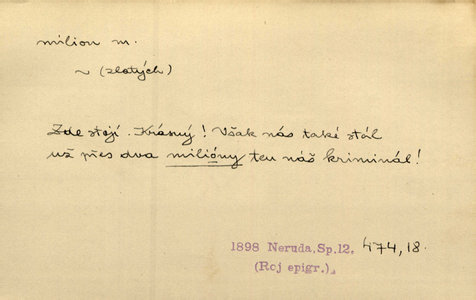 milion m.
~ (zlatých)
Zde stojí. Krásný! Však nás také stál
už přes dva milióny ten náš kriminál!
1898 Neruda, Sp.12, 474,18.
(Roj epigr.),